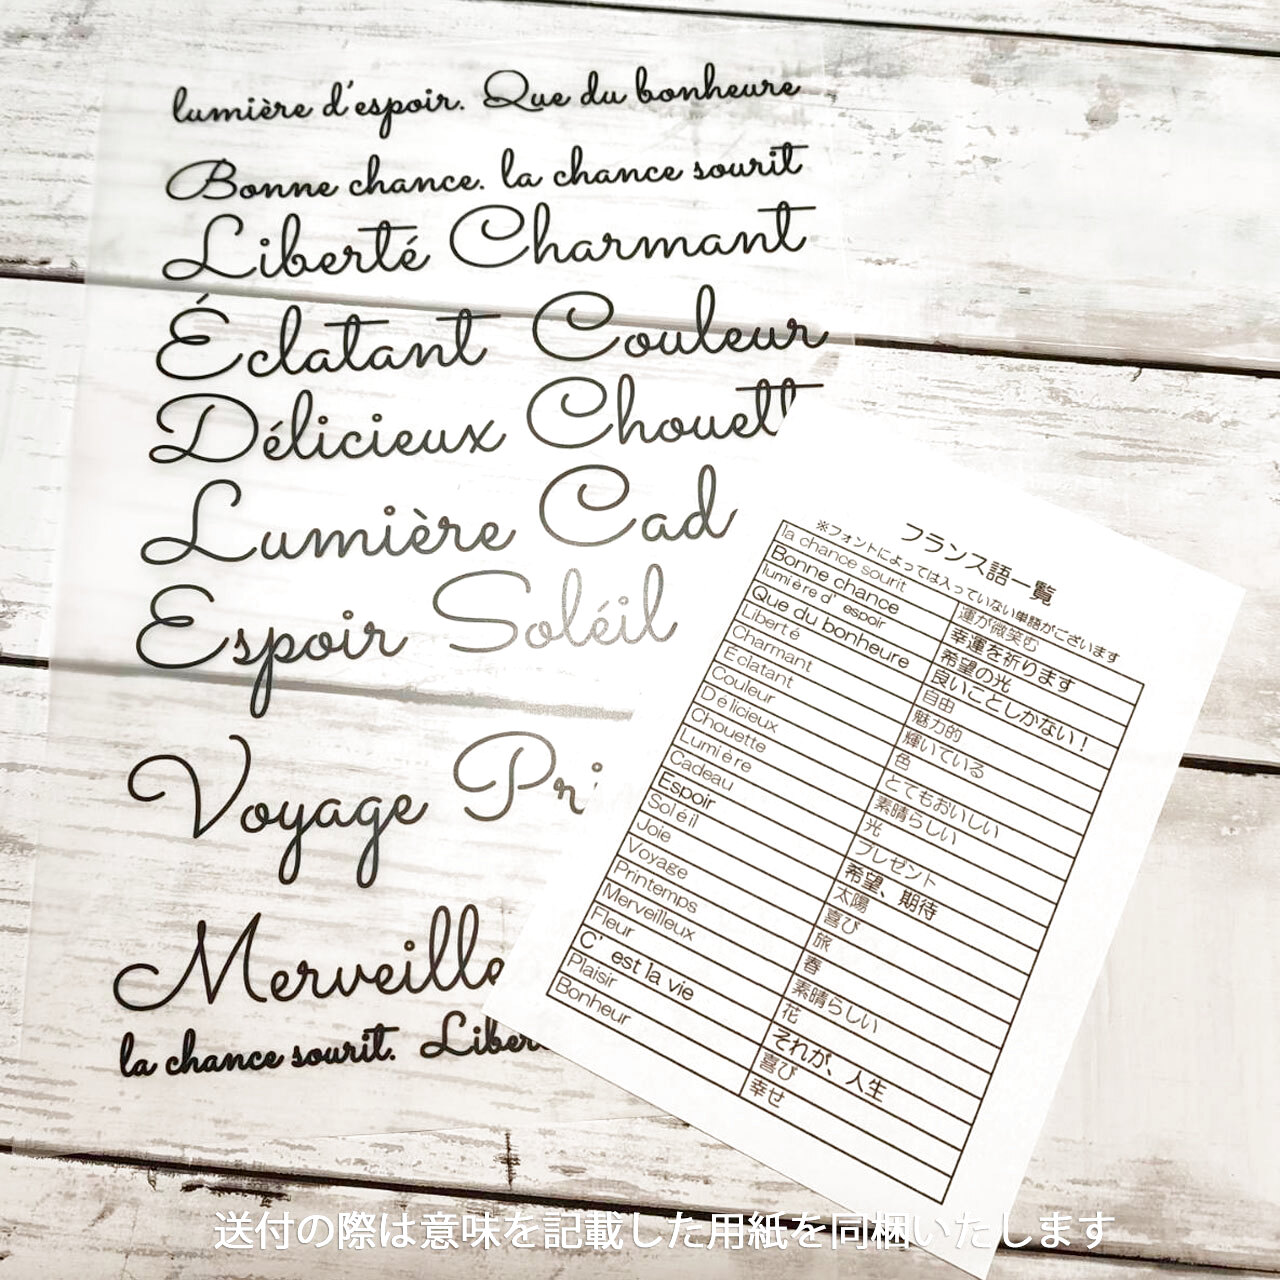 lumière d'espoir. Que du bonheure
Bonne chance. la chance sourit
Liberté Charmant
Éclatant Couleur
Délicieux Chouett
Lumière Cad
Espoir Soléil
Voyage Pri
Merveille
la chance sourit. Liber
フランス語一覧
※フォントによっては入っていない単語がございます
la chance sourit 運が微笑む
Bonne chance 幸運を祈ります
lumière d' espoir 希望の光
Que du bonheure 良いことしかない！
Liberté 自由
Charmant 魅力的
Éclatant 輝いている
Couleur 色
Délicieux とてもおいしい
Chouette 素晴らしい
Lumière 光
Cadeau プレゼント
Espoir 希望、期待
Soléil 太陽
Joie 喜び
Voyage 旅
Printemps 春
Merveilleux 素晴らしい
Fleur 花
C' est la vie それが、人生
Plaisir 喜び
Bonheur 幸せ
送付の際は意味を記載した用紙を同梱いたします